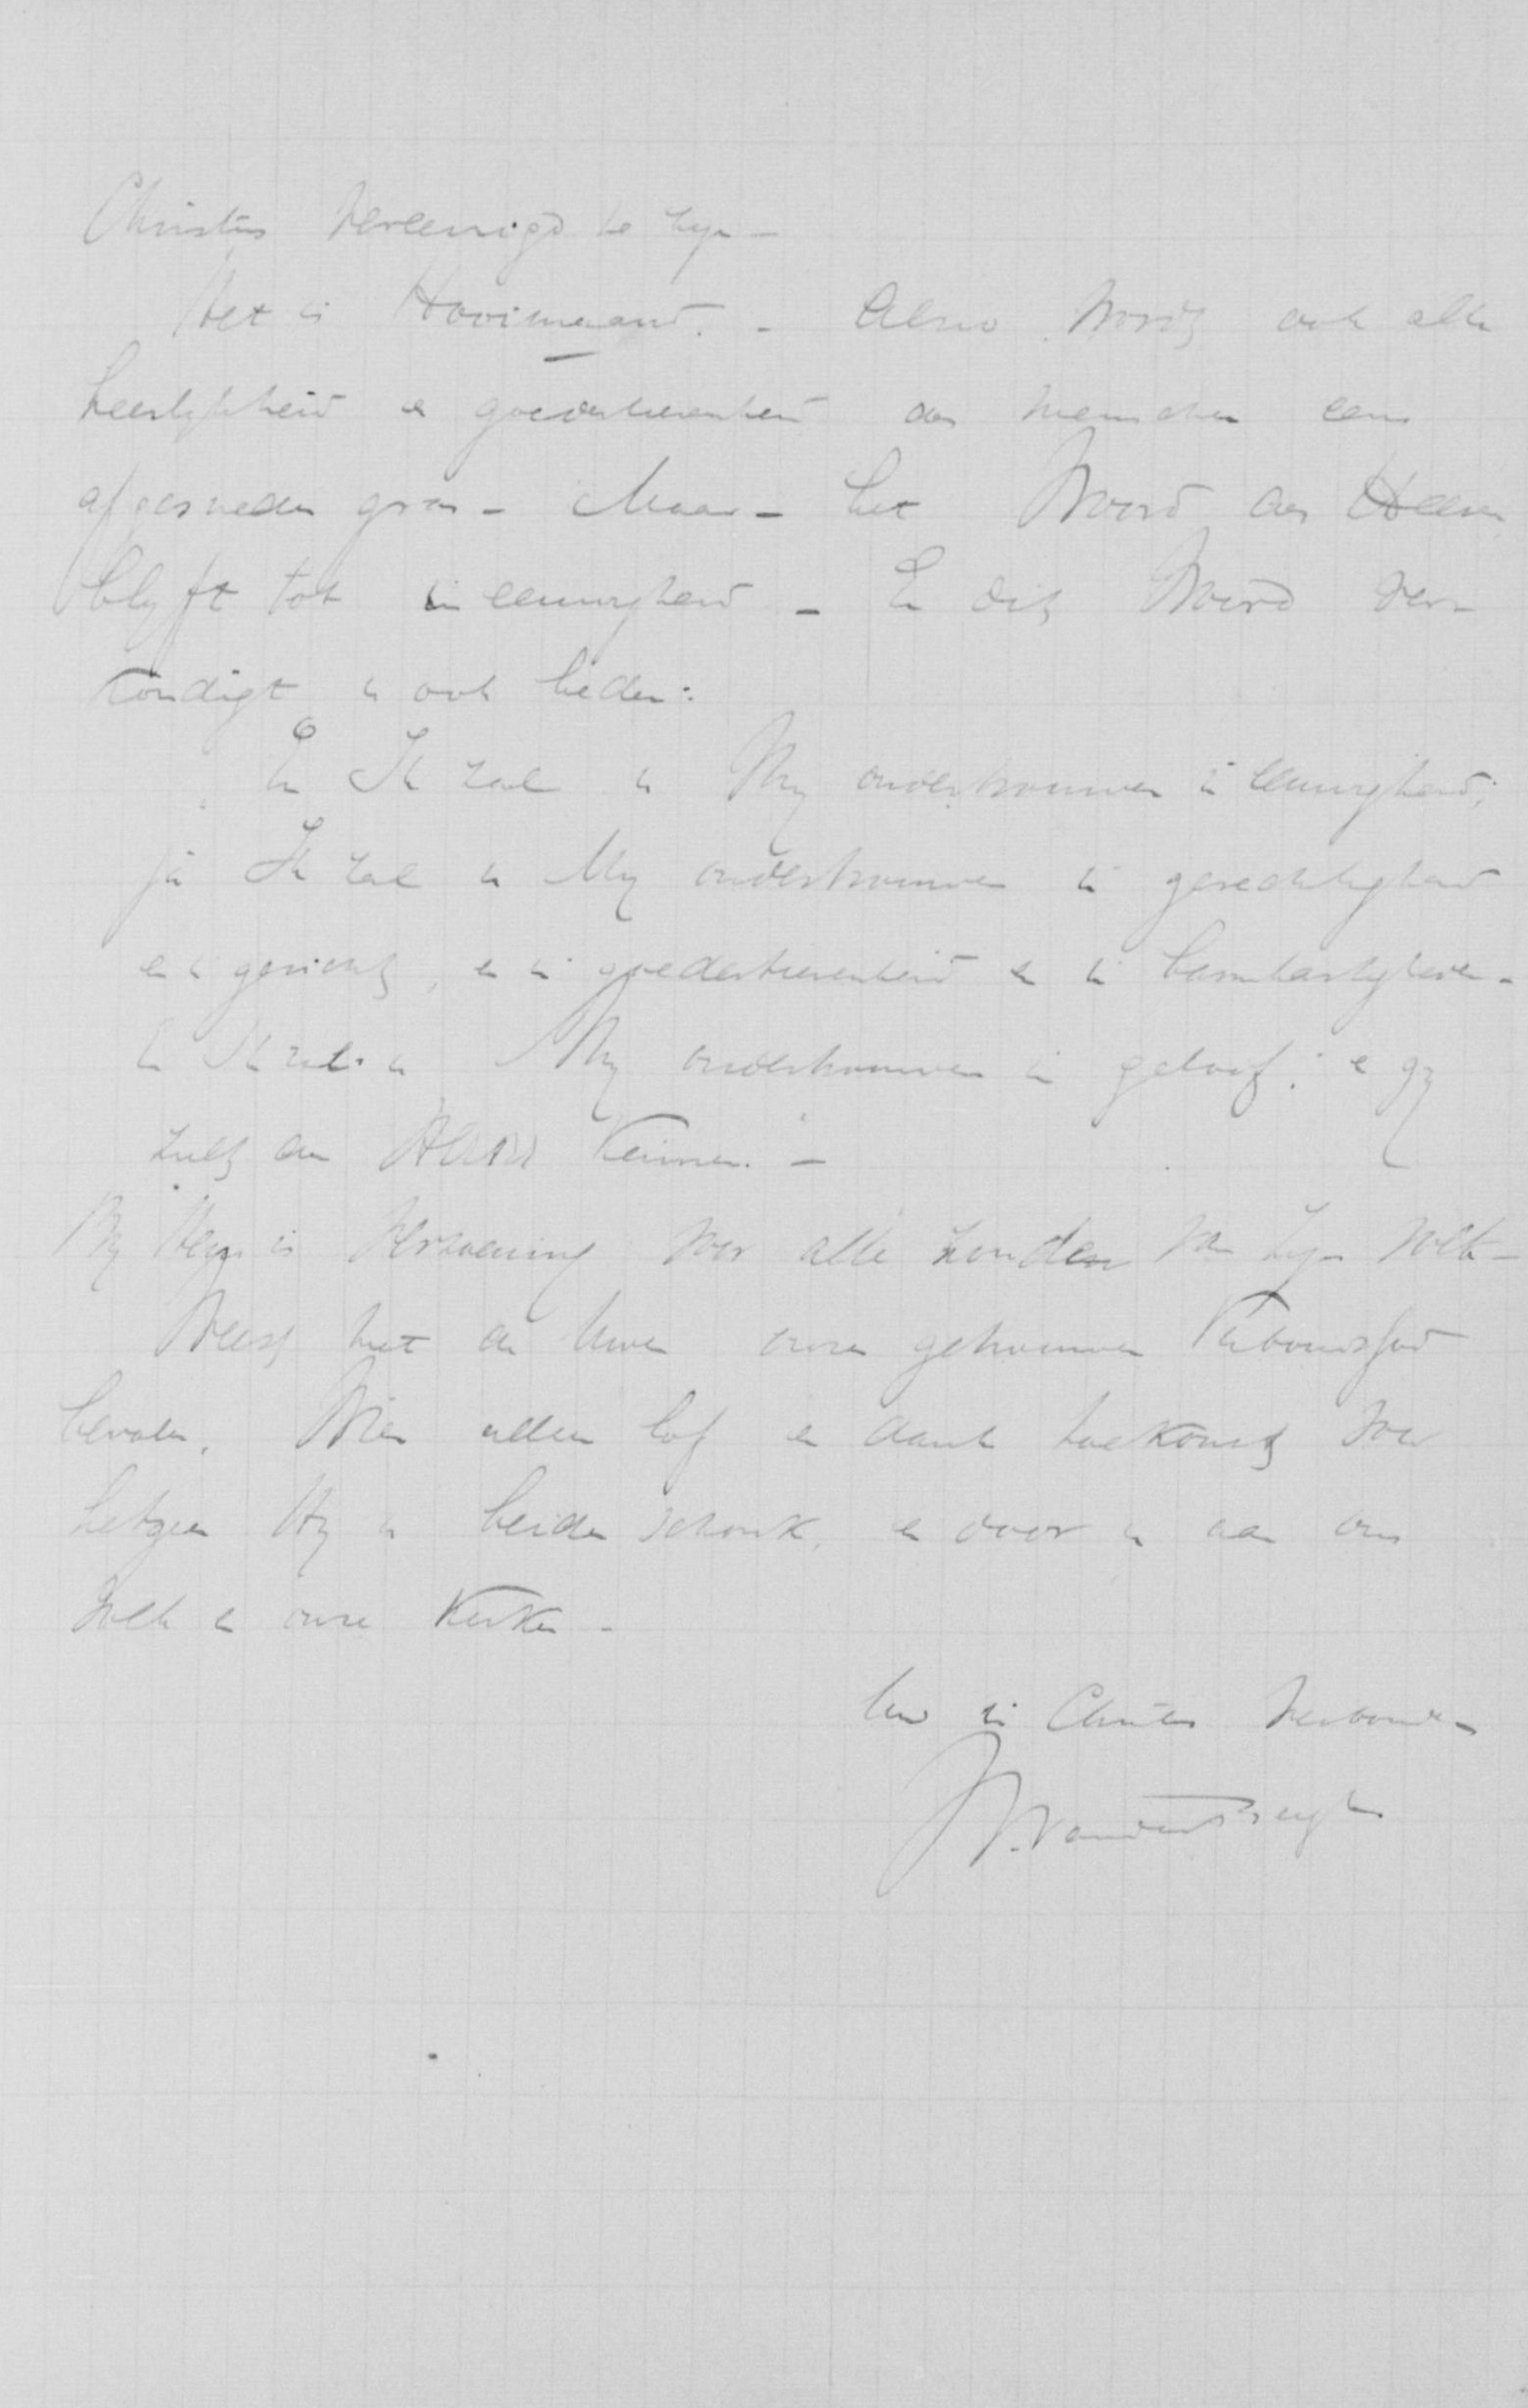 Christus vereenigd te zyn –
Het is Hooimaand. – Alzoo wordt ook alle
heerlykheid en goedertierenheid des menschen eens
afgesneden gras – Maar – het Woord des Heeren
blyft tot in eeuwigheid – En dit Woord ver-
kondigt u ook heden:
En Ik zal u My ondertrouwen in eeuwigheid;
ja Ik zal u My ondertrouwen in gerechtigheid
en in gericht, en in goedertierenheid en in barmhartigheden –
En Ik zal u My ondertrouwen in geloof; en gy
zult den HEERE kennen. –
By Hem is verzoening voor alle zonden van Zyn volk –
Weest met de Uwen onzen getrouwen Verbondsgod
bevolen, Wien alleen lof en dank toekomt voor
hetgeen Hy u beiden schonk, en door u aan ons
volk en onze Kerken –
Uw in Christus verbonden